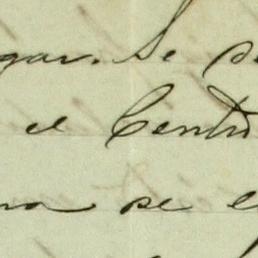 gar. Se
el Centro
na se e